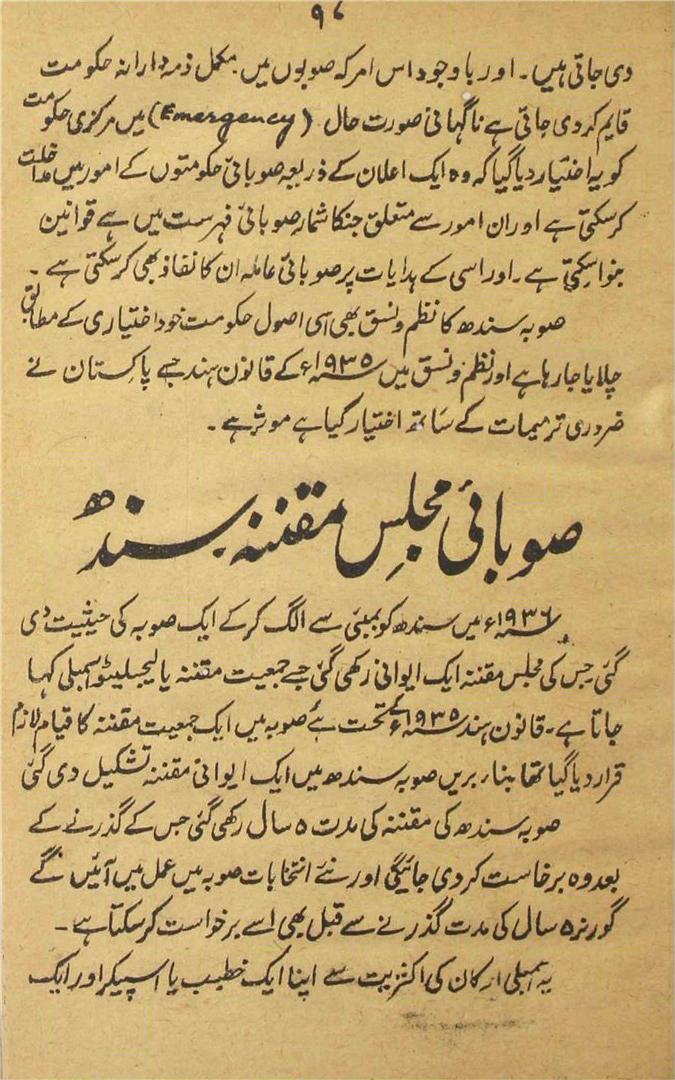 ۹۷
دی جاتی ہیں۔ اور باوجود اس امر کہ صوبوں میں مکمل ذمہ دارانہ حکومت
قایم کر دی جاتی ہے ناگہانی صورت حال (Emergency) میں مرکزی حکومت
کو یہ اختیار دیا گیا کہ وہ ایک اعلان کے ذریعہ صوبائی حکومتوں کے امور میں مداخلت
کر سکتی ہے اور ان امور سے متعلق جنکا شمار صوبائی فہرست میں ہے قوانین
بنوا سکتی ہے۔ اور اسی کے ہدایات پر صوبائی عاملہ ان کا نفاذ بھی کر سکتی ہے۔
صوبہ سندھ کا نظم و نسق بھی اسی اصول حکومت خود اختیاری کے مطابق
چلایا جا رہا ہے اور نظم و نسق میں ۱۹۳۵ء کے قانون ہند جسے پاکستان نے
ضروری ترمیمات کے ساتھ اختیار کیا ہے موثر ہے۔
صوبائی مجلسِ مقننہ سندھ
۱۹۳۶ء میں سندھ کو بمبئی سے الگ کر کے ایک صوبہ کی حیثیت دی
گئی جس کی مجلس مقننہ ایک ایوانی رکھی گئی جسے جمعیت مقننہ یا لیجسلیٹو اسمبلی کہا
جاتا ہے۔ قانون ہند ۱۹۳۵ء کے تحت ہر صوبہ میں ایک جمعیت مقننہ کا قیام لازم
قرار دیا گیا تھا بناء بریں صوبہ سندھ میں ایک ایوانی مقننہ تشکیل دی گئی
صوبہ سندھ کی مقننہ کی مدت ۵ سال رکھی گئی جس کے گذرنے کے
بعد وہ برخاست کر دی جائیگی اور نئے انتخابات صوبہ میں عمل میں آئیں گے
گورنر ۵ سال کی مدت گذرنے سے قبل بھی اسے برخواست کر سکتا ہے۔
یہ اسمبلی ارکان کی اکثریت سے اپنا ایک خطیب یا اسپیکر اور ایک